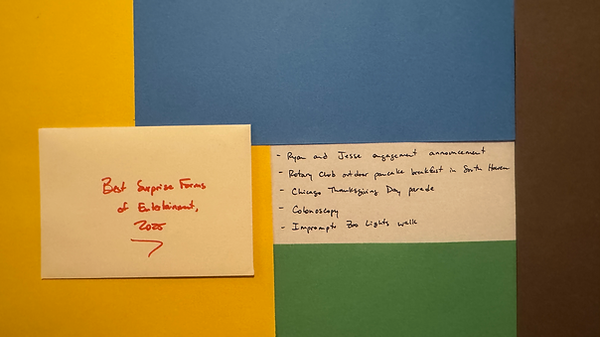 Best Surprise Forms
of Entertainment,
2025
- Ryan and Jesse engagement announcement
- Rotary Club outdoor pancake breakfast in South Haven
- Chicago Thanksgiving Day parade
- Colonoscopy
- Impromptu Zoo Lights walk